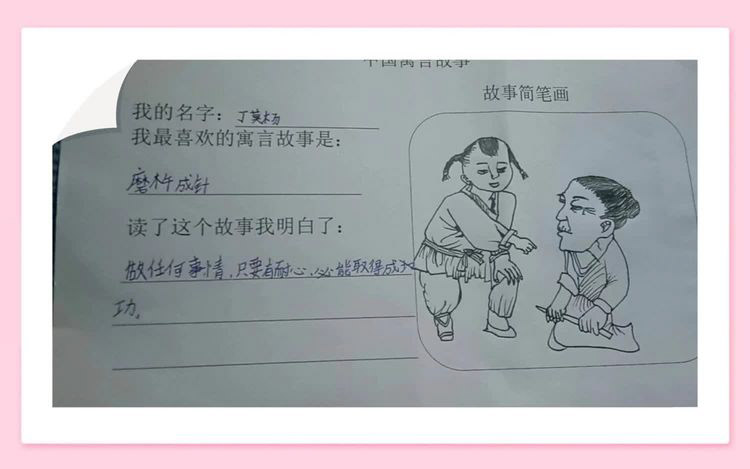 中国寓言故事
故事简笔画
我的名字：丁莫杨
我最喜欢的寓言故事是：
磨杵成针
读了这个故事我明白了：
做任何事情，只要有耐心，必能取得成
功。